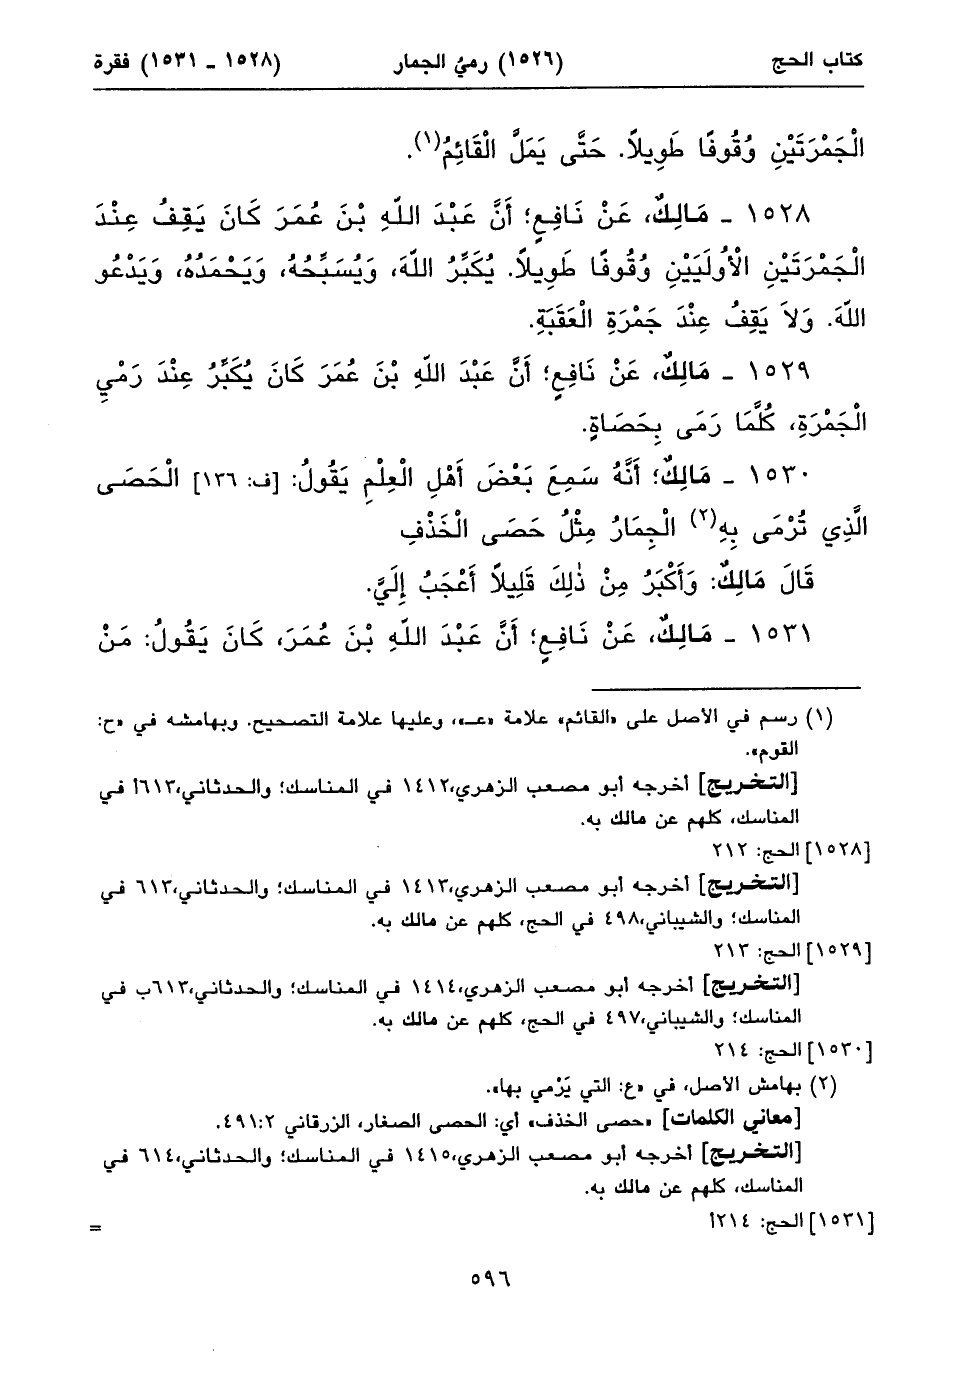 كتاب الحج (١٥٢٦) رميُ الجمار (١٥٢٨ ـ ١٥٣١) فقرة
الْجَمْرَتَيْنِ وُقُوفًا طَوِيلاً. حَتَّى يَمَلَّ الْقَائِمُ(١).
١٥٢٨ ـ مَالِكٌ، عَنْ نَافِعٍ؛ أَنَّ عَبْدَ اللّهِ بْنَ عُمَرَ كَانَ يَقِفُ عِنْدَ
الْجَمْرَتَيْنِ الْأُولَيَيْنِ وُقُوفًا طَوِيلاً. يُكَبِّرُ اللّهَ، وَيُسَبِّحُهُ، وَيَحْمَدُهُ، وَيَدْعُو
اللّهَ. وَلاَ يَقِفُ عِنْدَ جَمْرَةِ الْعَقَبَةِ.
١٥٢٩ ـ مَالِكٌ، عَنْ نَافِعٍ؛ أَنَّ عَبْدَ اللّهِ بْنَ عُمَرَ كَانَ يُكَبِّرُ عِنْدَ رَمْيِ
الْجَمْرَةِ، كُلَّمَا رَمَى بِحَصَاةٍ.
١٥٣٠ ـ مَالِكٌ؛ أَنَّهُ سَمِعَ بَعْضَ أَهْلِ الْعِلْمِ يَقُولُ: [ف: ١٣٦] الْحَصَى
الَّذِي تُرْمَى بِهِ(٢) الْجِمَارُ مِثْلُ حَصَى الْخَذْفِ
قَالَ مَالِكٌ: وَأَكْبَرُ مِنْ ذٰلِكَ قَلِيلاً أَعْجَبُ إِلَيَّ.
١٥٣١ ـ مَالِكٌ، عَنْ نَافِعٍ؛ أَنَّ عَبْدَ اللّهِ بْنَ عُمَرَ، كَانَ يَقُولُ: مَنْ
(١) رسم في الأصل على «القائم» علامة «عـ»، وعليها علامة التصحيح. وبهامشه في «ح:
القوم».
[التخريج] أخرجه أبو مصعب الزهري،١٤١٢ في المناسك؛ والحدثاني،٦١٣أ في
المناسك، كلهم عن مالك به.
[١٥٢٨] الحج: ٢١٢
[التخريج] أخرجه أبو مصعب الزهري،١٤١٣ في المناسك؛ والحدثاني،٦١٣ في
المناسك؛ والشيباني،٤٩٨ في الحج، كلهم عن مالك به.
[١٥٢٩] الحج: ٢١٣
[التخريج] أخرجه أبو مصعب الزهري،١٤١٤ في المناسك؛ والحدثاني،٦١٣ب في
المناسك؛ والشيباني،٤٩٧ في الحج، كلهم عن مالك به.
[١٥٣٠] الحج: ٢١٤
(٢) بهامش الأصل، في «ع: التي يَرْمي بها».
[معاني الكلمات] «حصى الخذف» أي: الحصى الصغار، الزرقاني ٤٩١:٢.
[التخريج] أخرجه أبو مصعب الزهري،١٤١٥ في المناسك؛ والحدثاني،٦١٤ في
المناسك، كلهم عن مالك به.
[١٥٣١] الحج: ٢١٤أ =
٥٩٦